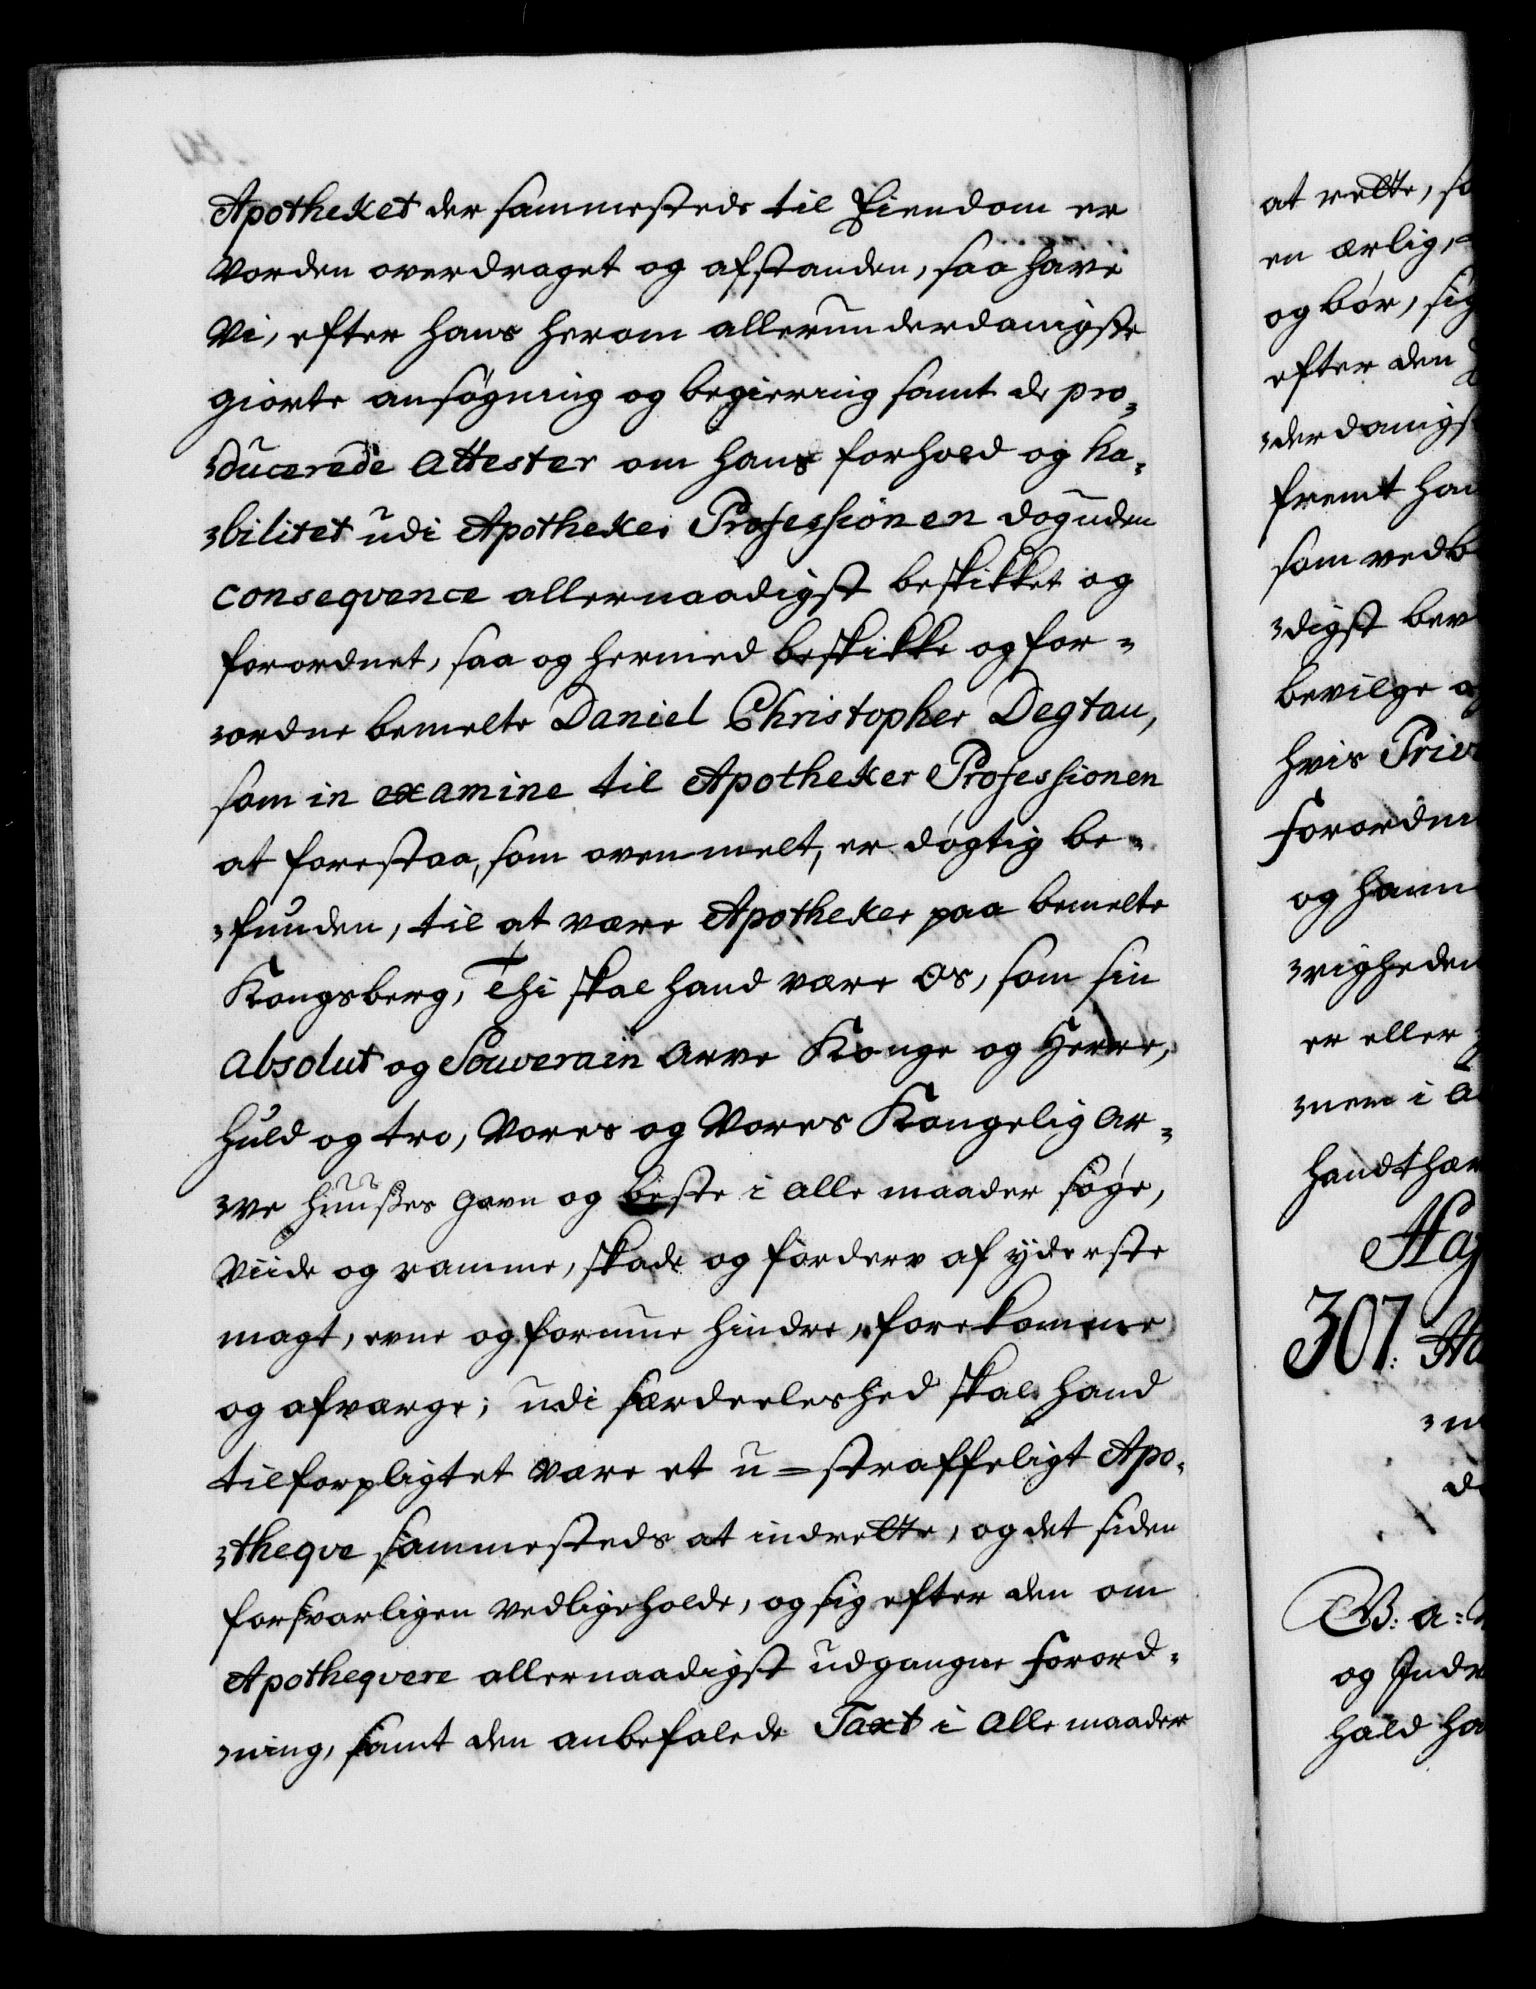 Apotheket der sammesteds til Eiendom er
vorden overdraget og afstanden, saa have
Vi, efter hans herom allerunderdanigste
giorte ansøgning og begiering samt de pro-
-ducerede Attester om hans forhold og ha-
-bilitet udi Apotheker Professionen dog uden
conseqvence allernaadigst beskikket og
forordnet, saa og hermed beskikke og for-
-ordne bemelte Daniel Christopher Degtau,
som in examine til Apotheker Professionen
at forestaa, som oven melt, er døgtig be-
-funden, til at være Apotheker paa bemelte
Kongsberg, Thi skal hand være Os, som sin
Absolut og Souverain Arve Konge og Herre,
huld og tro, Vores og Vores Kongelig Ar-
-ve Huußes gavn og beste i alle maader søge,
viide og ramme, skade og forderv af yderste
magt, evne og formue hindre, forekomme
og afværge; udi særdeeleshed skal hand
tilforpligtet være et u-straffeligt Apo-
-theqve sammesteds at indrette, og det siden
forsvarligen vedligeholde, og sig efter den om
Apotheqvere allernaadigst udgangne Forord-
-ning, samt den anbefalede Taxt i alle maader
at rette, so
en ærlig,
og bør, sig
efter den
-derdanigs
fremt han
som vedb
-digst bev
bevilge og
hvis Priv
Forordn
og hann
-righeden
er eller
-nem i A
handthæv
Haf
307: Ha
B: a:
og Indv
hald ha